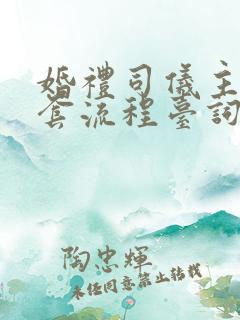 婚禮司儀主
套流程臺詞
陶忠輝
未经同意禁止转载